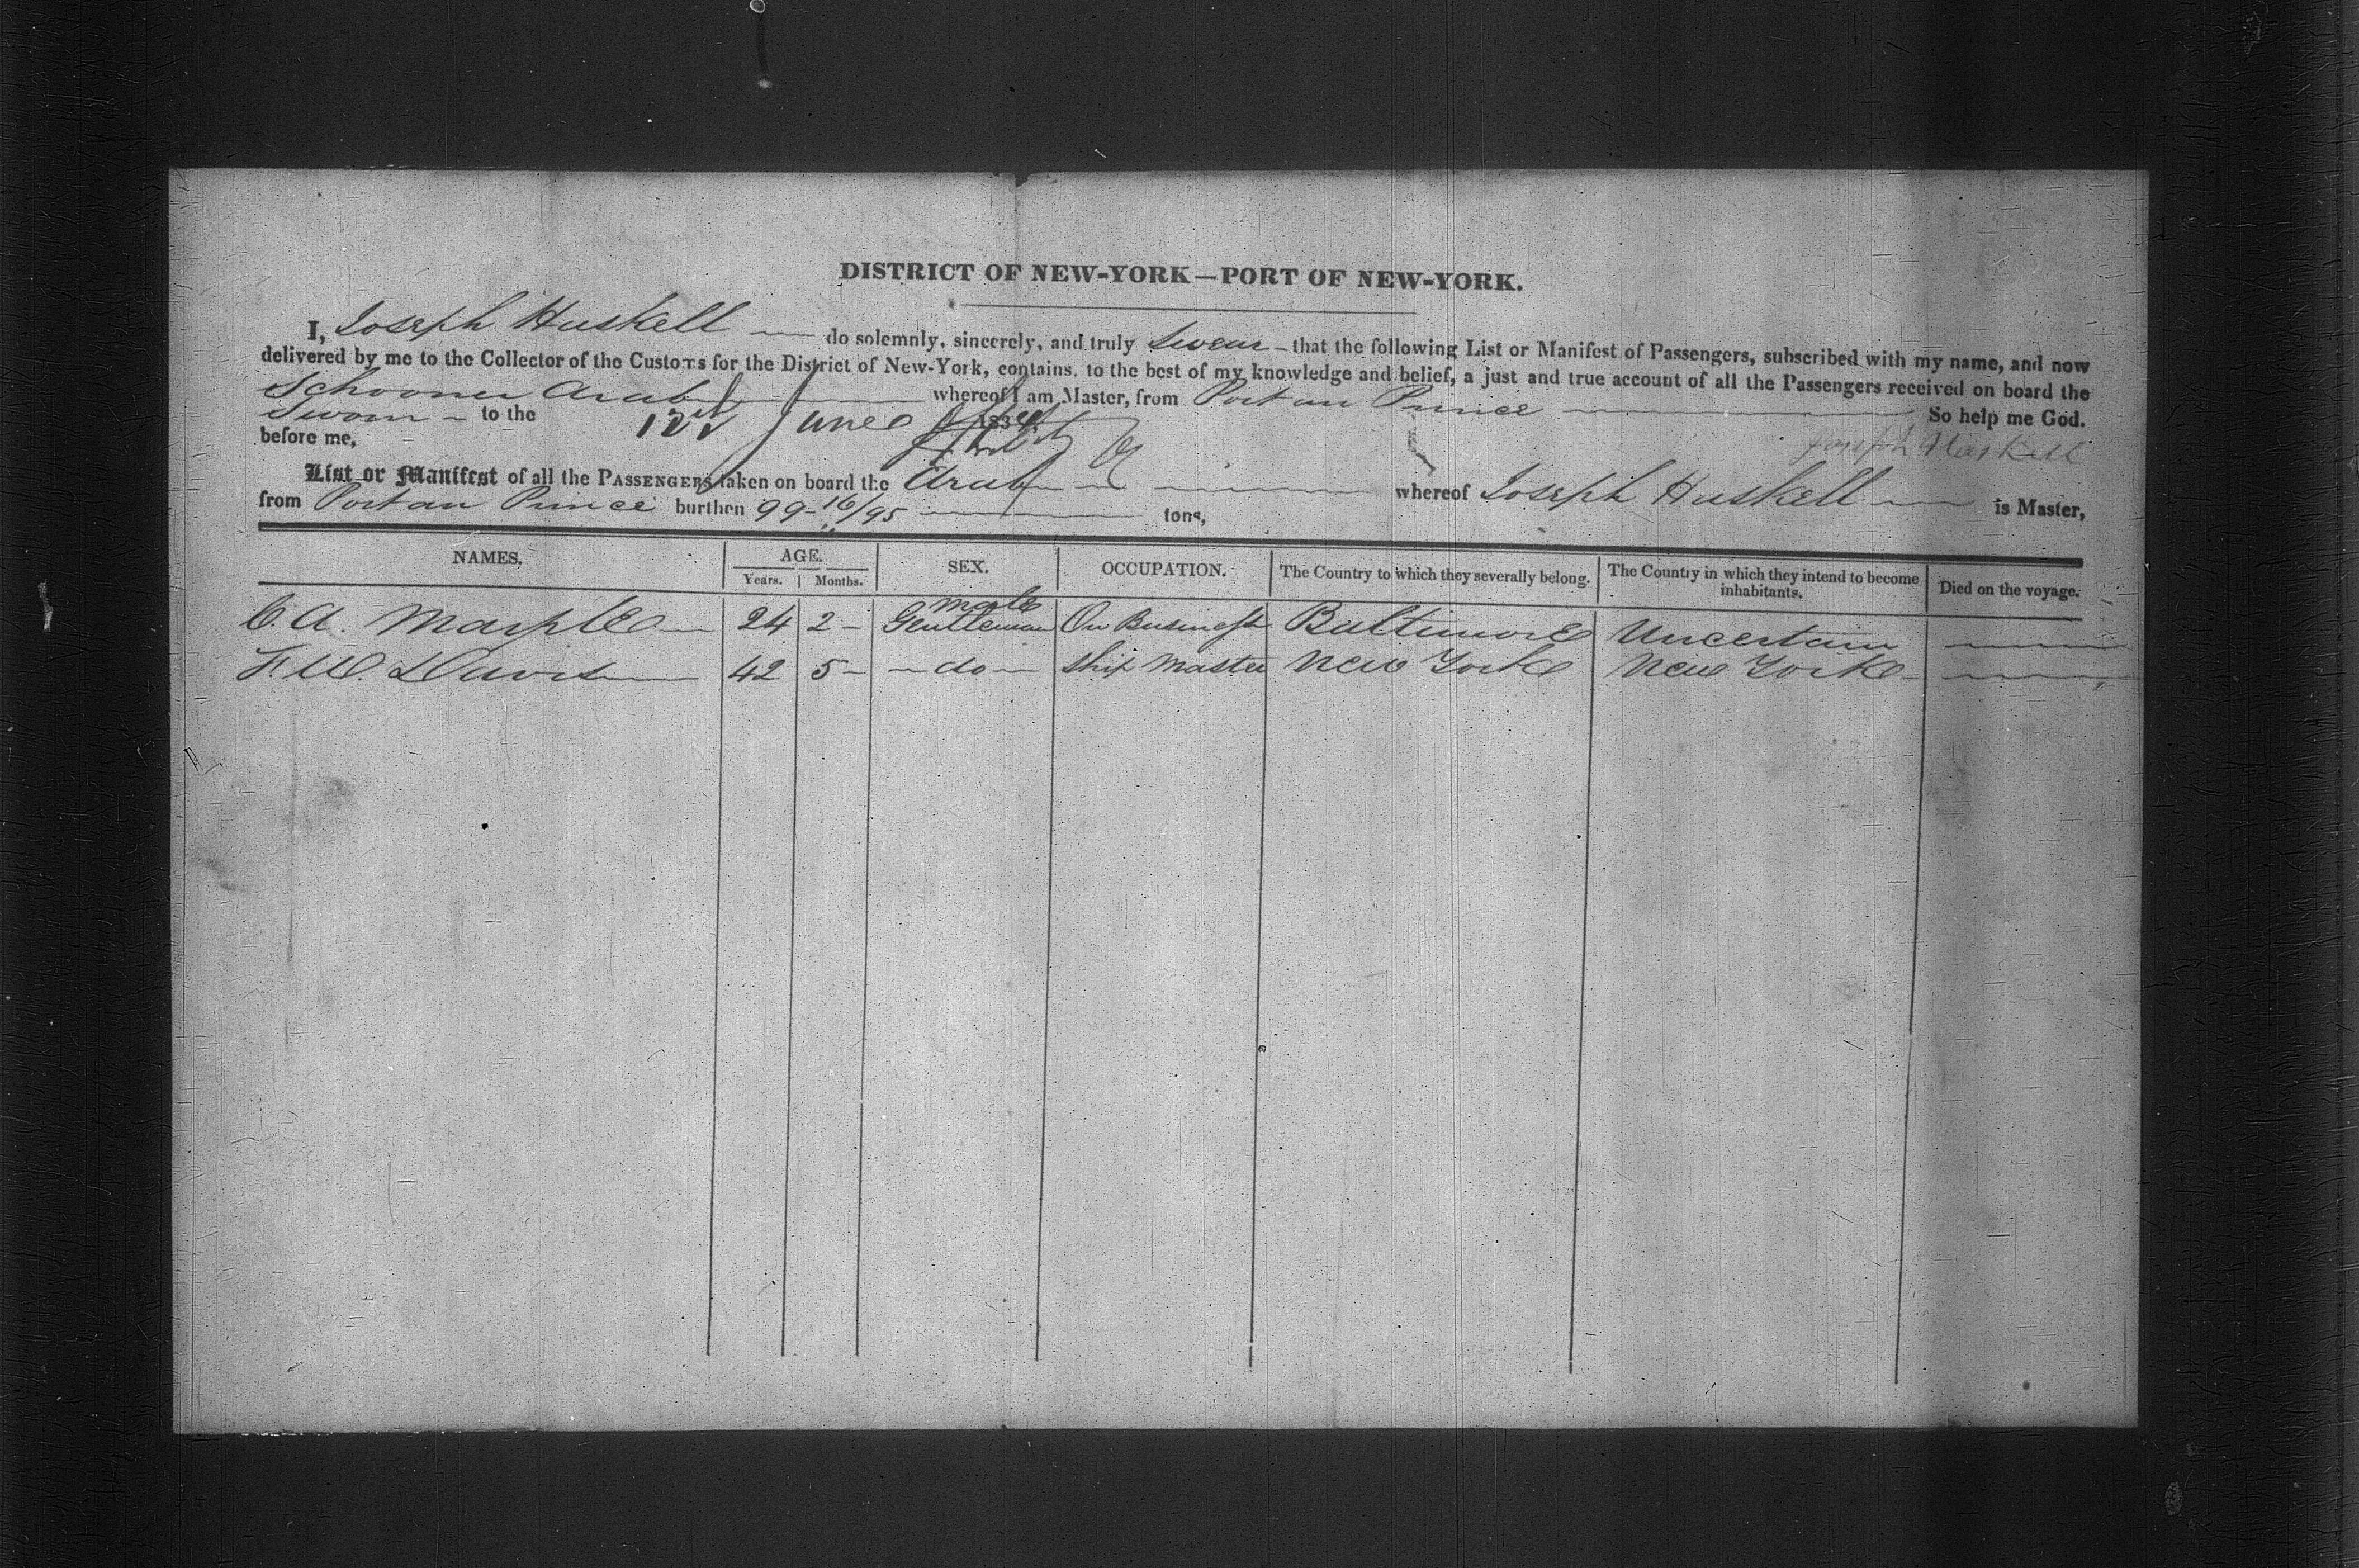 DISTRICT OF NEW-YORK—PORT OF NEW-YORK.
I, Joseph Huskell — do solemnly, sincerely, and truly Swear – that the following List or Manifest of Passengers, subscribed with my name, and now
delivered by me to the Collector of the Customs for the District of New-York, contains, to the best of my knowledge and belief, a just and true account of all the Passengers received on board the
Schooner Arab — whereof I am Master, from Port au Prince — So help me God.
Sworn – to the 12th June 183
before me,
Joseph Haskell
List or Manifest of all the PASSENGERS taken on board the Arab — whereof Joseph Huskell — is Master,
from Port au Prince burthen 99-16/95 — tons,
NAMES. AGE. SEX. OCCUPATION. The Country to which they severally belong. The Country in which they intend to become inhabitants. Died on the voyage.
Years. Months.
male
C. A. Marple — 24 2 – Gentleman On Business Baltimore Uncertain —
F. W. Davis — 42 5 – – do – Ship Master New York New York – —